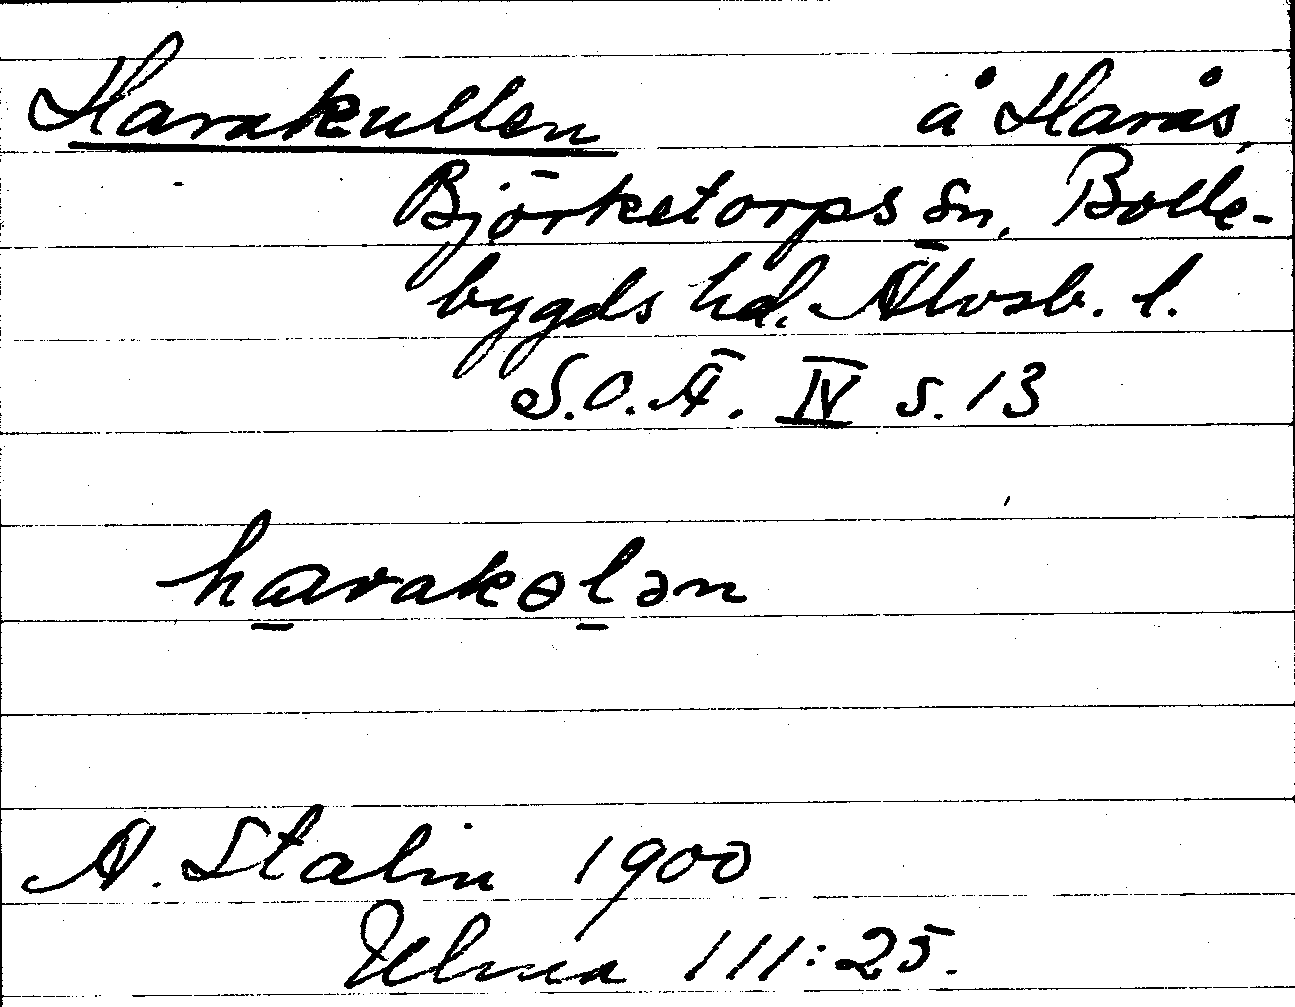 Harakullen å Harås,
Björketorps sn, Bolle-
bygds hd. Älvsb. l.
S.O.Ä. IV s. 13
harakɵlən
A. Stalin 1900
Ulma 111:25.